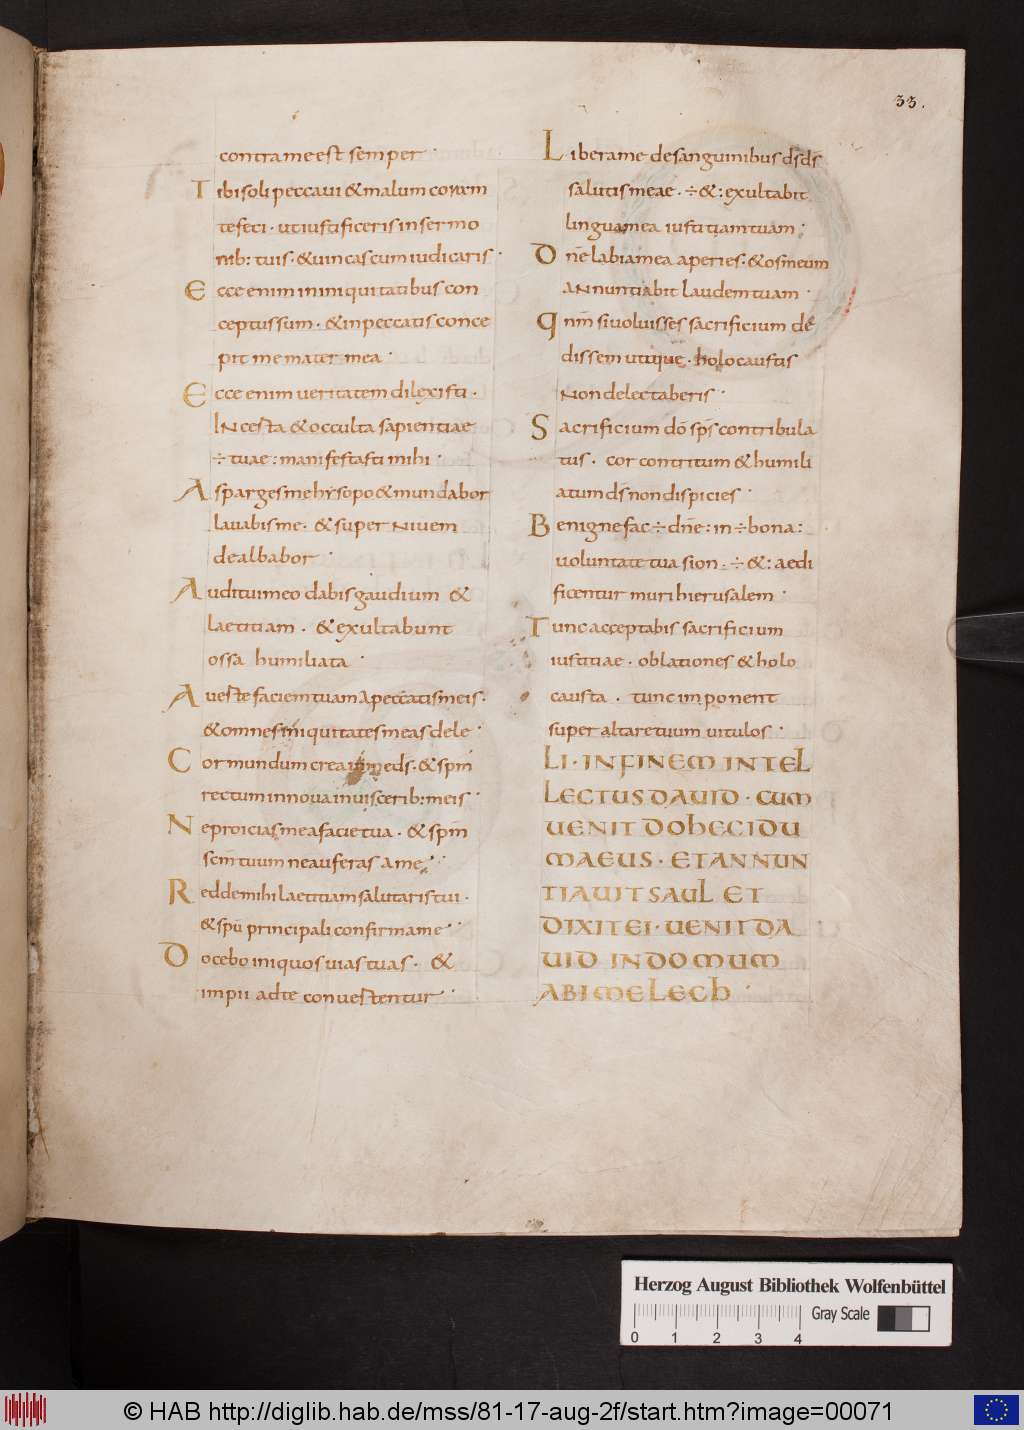 33.
contrameest semper ·
Tibisoli peccaui & malum coram
tefeci · utiustificeris in sermo
nib: tuis · & uincas cum iudicaris ·
Ecce enim in iniquitatibus con
ceptus sum · & in peccatis conce
pit me mater mea ·
Ecce enim ueritatem dilexisti ·
Incesta & occulta sapientiae
÷ tuae : manifestasti mihi ·
Asparges me hysopo & mundabor
lauabis me · & super niuem
dealbabor ·
Auditui meo dabis gaudium &
laetitiam · & exultabunt
ossa humiliata ·
Aueste faciem tuam a peccatis meis ·
& omnes iniquitates meas dele ·
Cor mundum crea in me ds̄ · & spm̄
rectum innoua in uiscerib: meis ·
Ne proicias me a facie tua · & spm̄
scm̄ tuum ne auferas a me ·
Redde mihi laetitiam salutaris tui ·
& spū principali confirma me ·
Docebo iniquos uias tuas · &
impii ad te conuestentur ·
Libera me de sanguinibus ds̄ ds̄
salutis meae · ÷ & : exultabit
lingua mea iustitiam tuam ·
Dn̄e labia mea aperies · & os meum
annuntiabit laudem tuam ·
Qnm̄ si uoluisses sacrificium de
dissem utique · holocaustis
non delectaberis ·
Sacrificium dō sps̄ contribula
tus · cor contritum & humili
atum ds̄ non dispicies ·
Benigne fac ÷ dn̄e : in ÷ bona :
uoluntate tua sion · ÷ & : aedi
ficentur muri hierusalem ·
Tunc acceptabis sacrificium
iustitiae · oblationes & holo
causta · tunc imponent
super altare tuum uitulos ·
LI · IN FINEM INTEL
LECTUS DAUID · CUM
UENIT DOHEC IDU
MAEUS · ET ANNUN
TIAUIT SAUL ET
DIXIT EI · UENIT DA
UID IN DOMUM
ABIMELECH ·
Herzog August Bibliothek Wolfenbüttel
Gray Scale
0 1 2 3 4
© HAB http://diglib.hab.de/mss/81-17-aug-2f/start.htm?image=00071